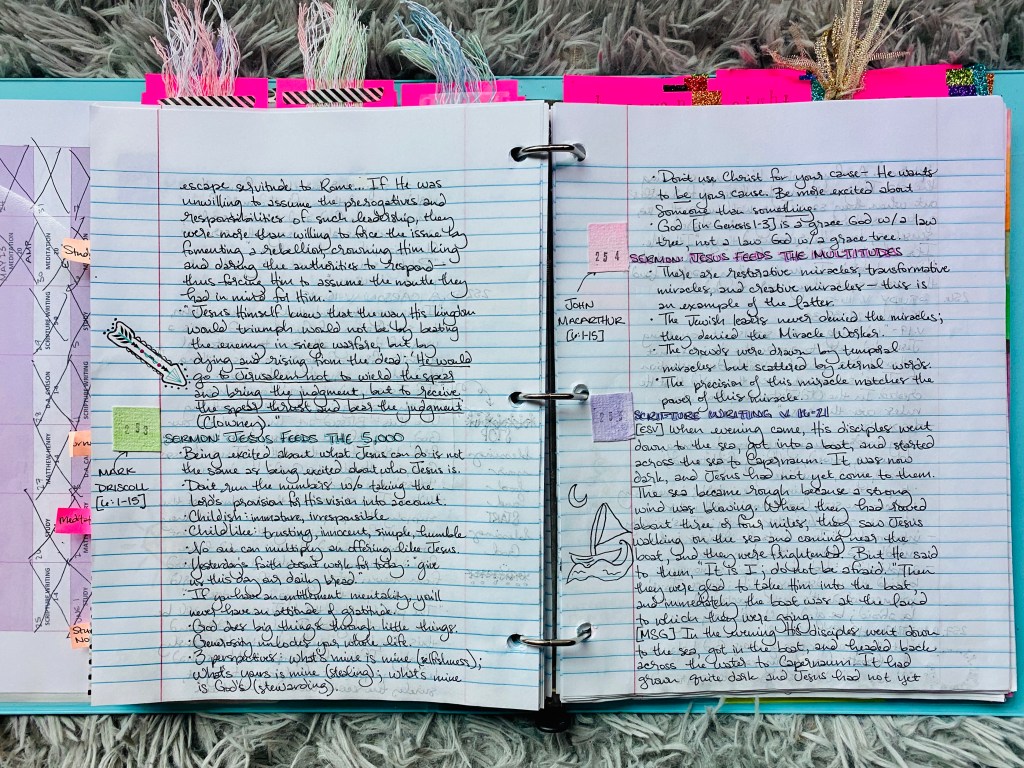 escape servitude to Rome... If He was
unwilling to assume the prerogatives and
responsibilities of such leadership, they
were more than willing to force the issue by
fomenting a rebellion, crowning Him king
and daring the authorities to respond -
thus forcing Him to assume the mantle they
had in mind for Him.
· "Jesus Himself knew that the way His kingdom
would triumph would not be by beating
the enemy in siege warfare, but by
dying and rising from the dead: 'He would
go to Jerusalem not to wield the spear
and bring the judgment, but to receive
the spear thrust and bear the judgment
(Clowney)."
253
SERMON: JESUS FEEDS THE 5,000
MARK
DRISCOLL
[6-1-15]
· Being excited about what Jesus can do is not
the same as being excited about who Jesus is.
· Don't run the numbers w/o taking the
Lord's provision for His vision into account.
· Childish: immature, irresponsible
· Childlike: trusting, innocent, simple, humble
· No one can multiply an offering like Jesus.
· Yesterday's faith doesn't work for today: "give
us this day our daily bread."
· If you have an entitlement mentality, you'll
never have an attitude of gratitude.
· God does big things through little things.
· Generosity unlocks your whole life.
· 3 perspectives: what's mine is mine (selfishness);
what's yours is mine (stealing); what's mine
is God's (stewarding).
· Don't use Christ for your cause - He wants
to be your cause. Be more excited about
Someone than something.
· God [in Genesis 1-3] is a grace God w/ a law
tree, not a law God w/ a grace tree.
254
SERMON: JESUS FEEDS THE MULTITUDES
JOHN
MACARTHUR
[6-1-15]
· There are restorative miracles, transformative
miracles, and creative miracles - this is
an example of the latter.
· The Jewish leaders never denied the miracles;
they denied the Miracle Worker.
· The crowds were drawn by temporal
miracles but scattered by eternal words.
· The precision of this miracle matches the
power of this miracle.
255
SCRIPTURE WRITING v. 16-21
[ESV] When evening came, His disciples went
down to the sea, got into a boat, and started
across the sea to Capernaum. It was now
dark, and Jesus had not yet come to them.
The sea became rough because a strong
wind was blowing. When they had rowed
about three or four miles, they saw Jesus
walking on the sea and coming near the
boat, and they were frightened. But He said
to them, "It is I; do not be afraid." Then
they were glad to take Him into the boat,
and immediately the boat was at the land
to which they were going.
[MSG] In the evening His disciples went down
to the sea, got in the boat, and headed back
across the water to Capernaum. It had
grown quite dark and Jesus had not yet
MEDITATION
SCRIPTURE WRITING
D.A. CARSON
MATTHEW HENRY
STUDY
SCRIPTURE WRITING